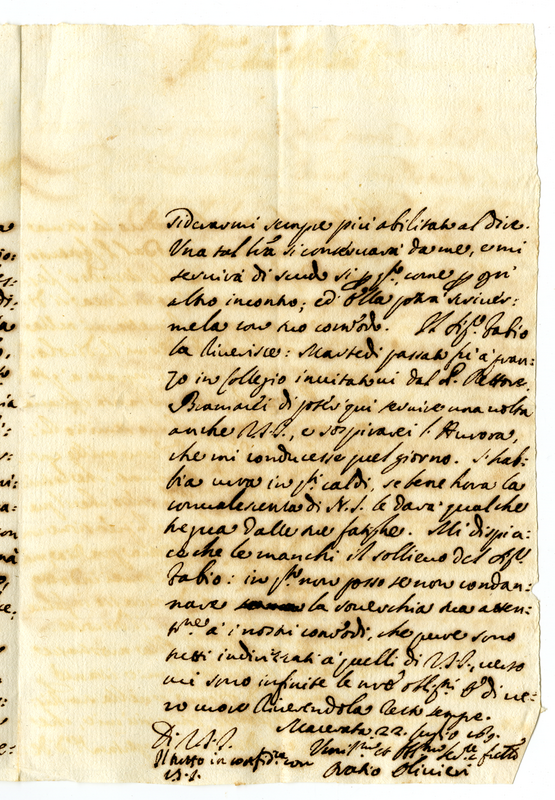 siderarmi sempre più abilitato al dire.
Una tal lrã si conservarà da me, e mi
servirà di scudo sì p q.to, come p ogn'
altro inconto; ed ella potrà scriver-
mela con suo com̃odo. Il Sig.r Fabio
la riverisce: Martedi passato fù a pran-
zo in Collegio invitatovi dal P. Rettore.
Bramarei di poter qui servire una volta
anche V.S.I., e sospirarei l'Aurora,
che mi conducesse quel giorno. S'hab-
bia cura in q.ti caldi, se bene hora la
convalescenza di N.S. le darà qualche
tregua dalle sue fatighe. Mi dispia-
ce che le manchi il sollievo del Sig.r
Fabio: in q.to non posso se non condan-
nare la soverchia sua atten-
t.ne a' i nostri com̃odi, che pure sono
tutti indirizzati à quelli di V.S.I., verso
cui sono infinite le nr̃e obblig.ni E di ve-
ro cuore riverendola resto sempre.
Macerata 22. 
Di V.S.I.
Il tutto in confid.za con
V.S.
Oratio Olivieri